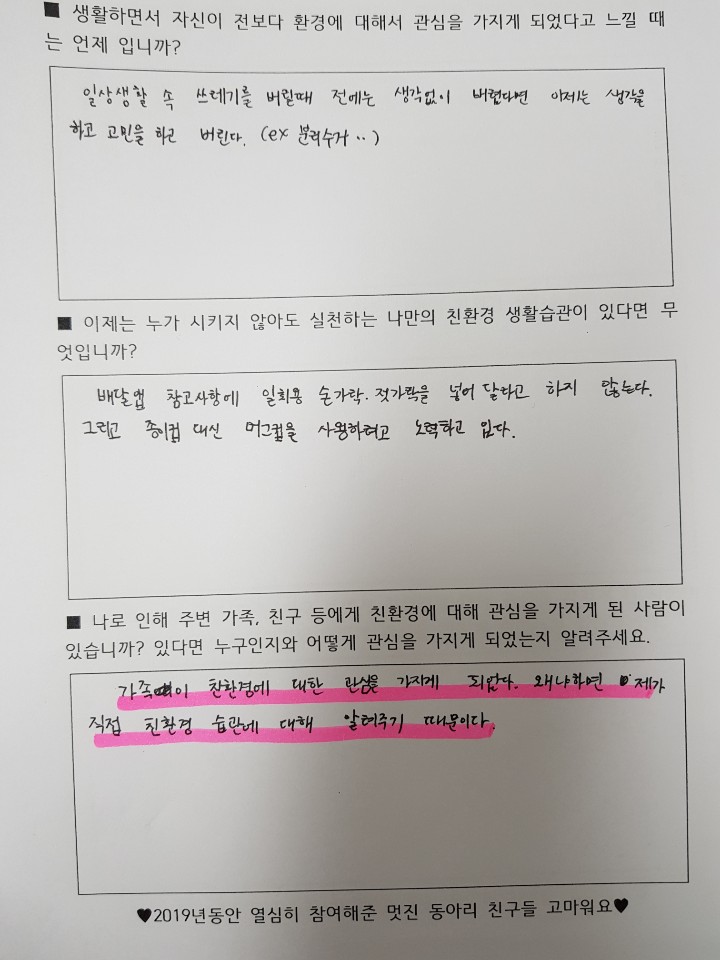 ■ 생활하면서 자신이 전보다 환경에 대해서 관심을 가지게 되었다고 느낄 때
는 언제 입니까?
일상생활 속 쓰레기를 버릴때 전에는 생각없이 버렸다면 이제는 생각을
하고 고민을 하고 버린다. (ex 분리수거 ..)
■ 이제는 누가 시키지 않아도 실천하는 나만의 친환경 생활습관이 있다면 무
엇입니까?
배달앱 참고사항에 일회용 숟가락. 젓가락을 넣어 달라고 하지 않는다.
그리고 종이컵 대신 머그컵을 사용하려고 노력하고 있다.
■ 나로 인해 주변 가족, 친구 등에게 친환경에 대해 관심을 가지게 된 사람이
있습니까? 있다면 누구인지와 어떻게 관심을 가지게 되었는지 알려주세요.
가족이 친환경에 대한 관심을 가지게 되었다. 왜냐하면 제가
직접 친환경 습관에 대해 알려주기 때문이다.
♥2019년동안 열심히 참여해준 멋진 동아리 친구들 고마워요♥